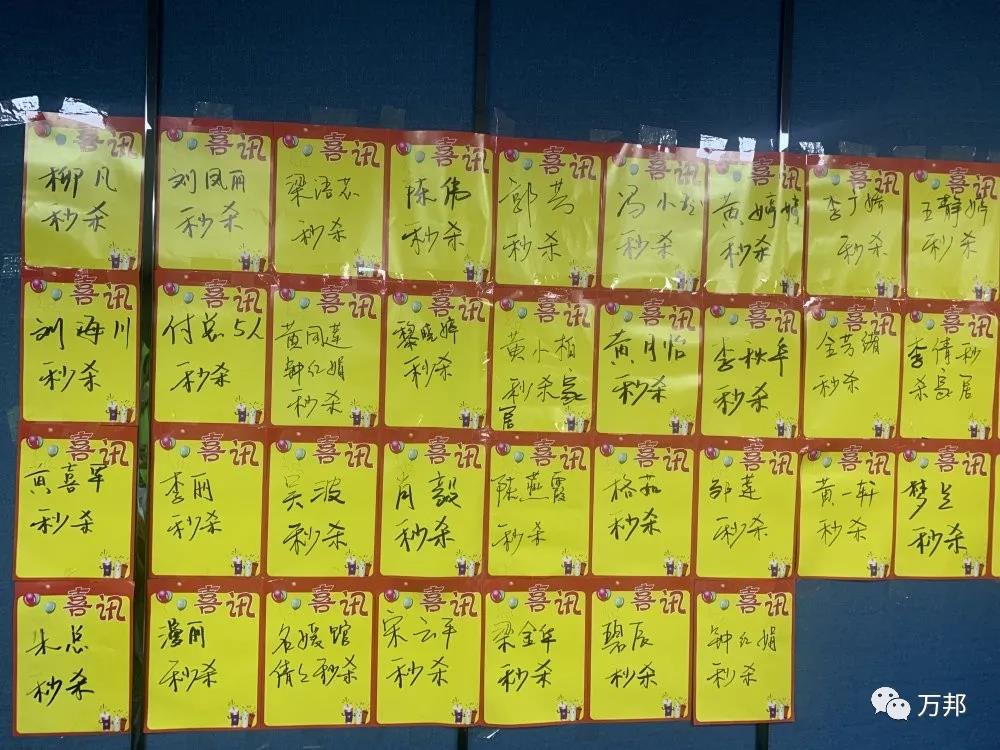 喜讯
柳凡
秒杀
喜讯
刘凤丽
秒杀
喜讯
梁语芯
秒杀
喜讯
陈伟
秒杀
喜讯
郭芳
秒杀
喜讯
冯小龙
秒杀
喜讯
黄婷婷
秒杀
喜讯
李丁嫦
秒杀
喜讯
王静婷
秒杀
喜讯
刘海川
秒杀
喜讯
付总5人
秒杀
喜讯
黄凤莲
钟红娟
秒杀
喜讯
黎晓婷
秒杀
喜讯
黄小柏
秒杀家
居
喜讯
黄月怡
秒杀
喜讯
李秋年
秒杀
喜讯
金芳绪
秒杀
喜讯
李倩秒
杀家居
喜讯
黄喜军
秒杀
喜讯
李丽
秒杀
喜讯
吴波
秒杀
喜讯
肖毅
秒杀
喜讯
陈燕霞
秒杀
喜讯
格茹
秒杀
喜讯
邹莲
秒杀
喜讯
黄一轩
秒杀
喜讯
梦兰
秒杀
喜讯
朱总
秒杀
喜讯
漫丽
秒杀
喜讯
名媛馆
倩仁秒杀
喜讯
宋云平
秒杀
喜讯
梁金年
秒杀
喜讯
碧辰
秒杀
喜讯
钟红娟
秒杀
万邦